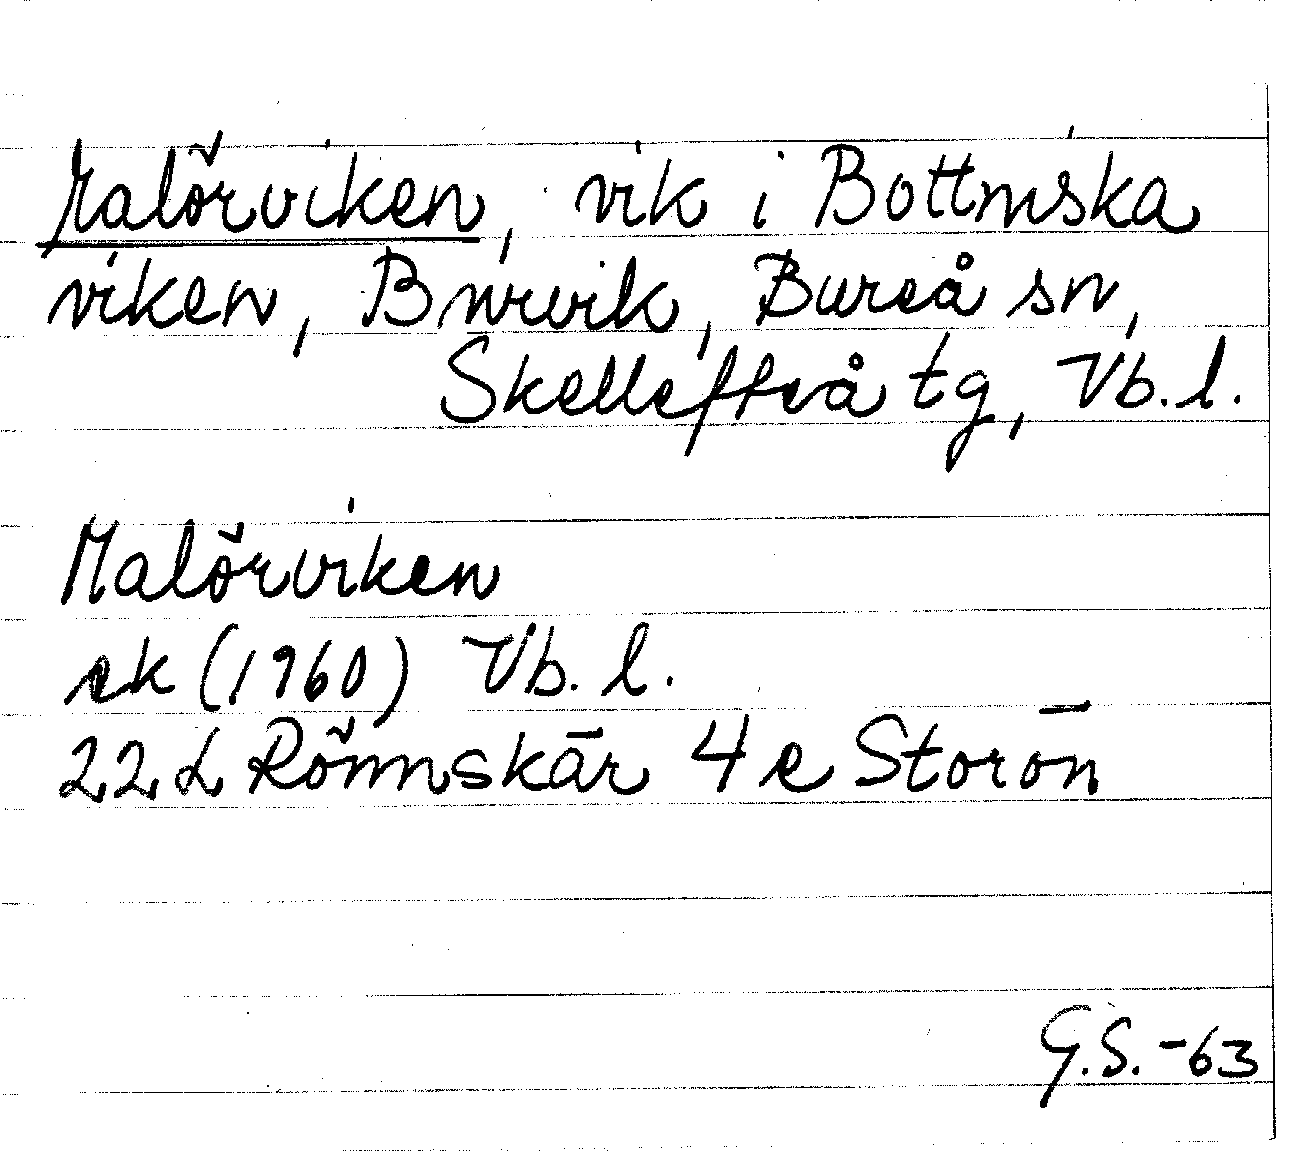 Malörviken, vik i Bottniska
viken, Burvik, Bureå sn,
Skellefteå tg, Vb. l.
Malörviken
ek (1960) Vb. l.
22 L Rönnskär 4 e Storön
G.S. -63